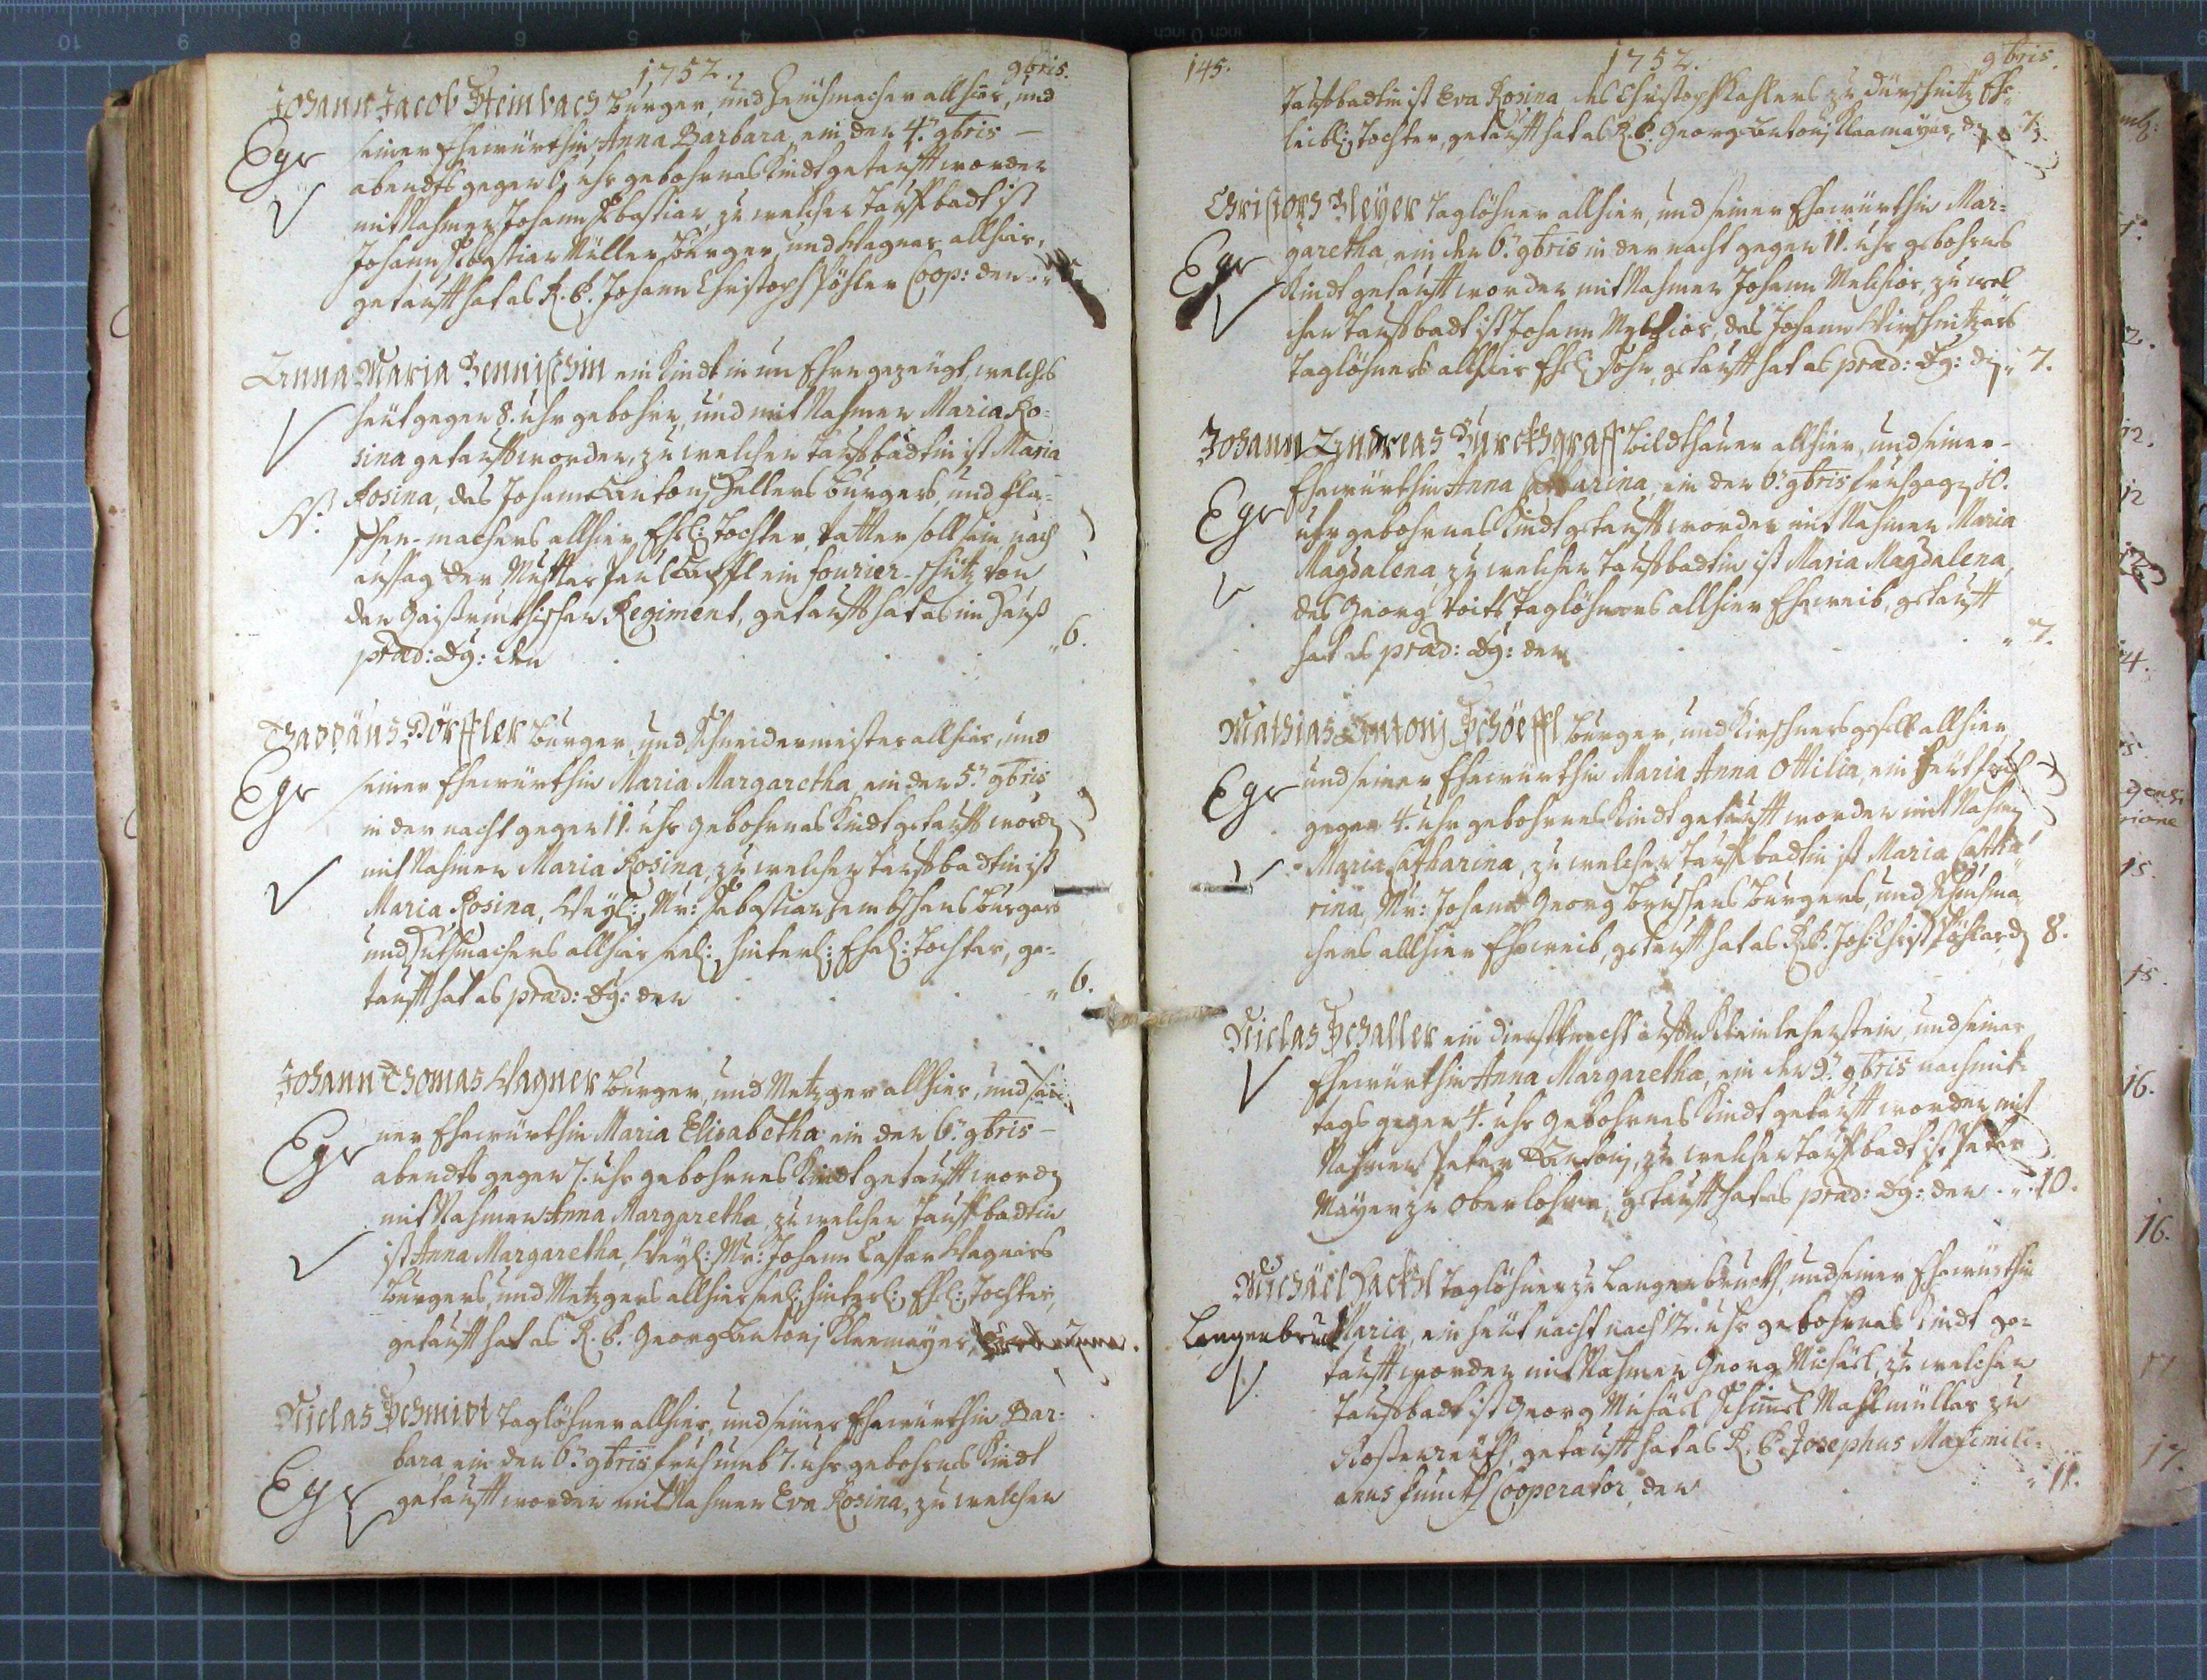 1752. 9bris.
Johann Jacob Steinbach burger, und allhier, und
Eger seiner Ehewürthin Anna Barbara, ein den 4ten 9bris
abendts gegen 6 uhr gebohrnes Kindt getaufft worden
mit Nahmen Johann Sebastian, zu welcher tauffbadt ist
Johann Sebastian Müller burger, und Wagner allhier,
getaufft hat es R. P. Johann Christoph Pöhler Coop: den
Anna Maria ein Kindt in un Ehren gezeugt, welches
heut gegen 8. uhr gebohrn, und mit Nahmen Maria Ro=
sina getaufft worden, zu welchen tauffbadtin ist Maria
N. Rosina, des Johann Antonj Hellers burgers, und fla=
schen-machers allhier Ehel: tochter, Vatter soll sein nach
aussag der Mutter Paul ein fourier-schütz von
den Regiment, getaufft hat es im Hauß
præd: Dg: den " 6.
Thadäus Dörffler burger, und Schneidermeister allhier, und
Eger seiner Ehewürthin Maria Margaretha, ein den 5ten 9bris
in der nacht gegen 11. uhr gebohrnes Kindt getaufft word
mit Nahmen Maria Rosina, zu welcher tauffbadtin ist
Maria Rosina, Weyl: Mr: Sebastian burgers
und Hutmachers allhier seel: hinterl: Ehel: tochter, ge=
taufft hat es præd: Dg: den " 6.
Johann Thomas Wagner burger, und Metzger allhier, und sei=
Eger ner Ehewürthin Maria Elisabetha ein den 6ten 9bris
abendts gegen 7. uhr gebohrnes Kindt getaufft word
mit Nahmen Anna Margaretha, zu welcher tauffbadtin
ist Anna Margaretha, Weyl: Mr: Johann Caspar Wagners
burgers, und Metzgers allhier seel: hinterl: Ehel: tochter,
getaufft hat es R. P. Georg Antonj Klaemayer,
Niclas Schmidt taglöhner allhier, und seiner Ehewürthin Bar=
bara, ein den 6ten 9bris fruh umb 7. uhr gebohrnes Kindt
Eger getaufft worden mit Nahmen Eva Rosina, zu welcher
145. 1752. 9bris.
tauffbadtin ist Eva Rosina, des Christoph zu dürschnitz Ehe
leibl: tochter, getaufft hat es R. P. Georg Antonj Klaamayer, d 7.
Christoph Meyer taglöhner allhier, und seiner Ehewürthin Mar=
Eger garetha, ein den 6ten 9bris in der nacht gegen 11. uhr gebohrnes
Kindt getaufft worden mit Nahmen Johann Melchior, zu wel
chen tauffbadt ist Johann Melchior, des Johann
taglöhners allhier Ehel: Sohn, getaufft hat es præd: Dg: d " 7.
Johann Andreas Burckhgraff bildthauer allhier, und seiner
Ehewürthin Anna Catharina, ein den 6ten 9bris fruh geg 10.
Eger uhr gebohrnes Kindt getaufft worden mit Nahmen Maria
Magdalena zu welcher tauffbadtin ist Maria Magdalena,
des Georg Voits taglöhners allhier Eheweib, getaufft
hat es præd: Dg: den " 7.
Mathias Antonj Schöeffl burger, und allhier
Eger und seiner Ehewürthin Maria Anna Ottilia, ein heut fruh
gegen 4. uhr gebohrnes Kindt getaufft worden mit Nahm
Maria Catharina, zu welcher tauffbadtin ist Maria Catha
rina, Mr: Johann Georg burgers, und
chers allhier Eheweib, getaufft hat es R. P. Joh: Christ Pöhler d 8.
Niclas Schaller ein dienstknecht lehenstein, und seiner
Ehewürthin Anna Margaretha, ein den 9ten 9bris nachmit=
tags gegen 4. uhr gebohrnes Kindt getaufft worden mit
Nahmen Peter Antonj, zu welcher tauffbadt ist Peter
Mayer zu Oberlohma, getaufft hat es præd: Dg: den " 10.
Michäel Hackhl taglöhner zu Langenbruckh, und seiner Ehewürthin
Langenbruck Maria, ein heut nacht nach 12. uhr gebohrnes Kindt ge=
taufft worden mit Nahmen Georg Michäel, zu welcher
tauffbadt ist Georg Michäel Schimel Mahlmüller zu
Roßenreuth, getaufft hat es R. P. Josephus Maximili=
anus Cooperator, den " 11.